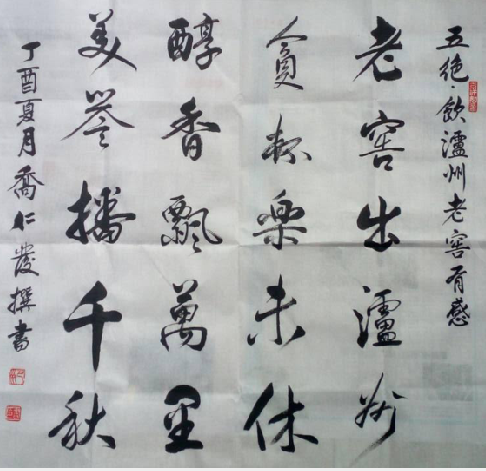 五絶·飲瀘州老窖有感
老窖出瀘州
貪杯樂未休
醇香飄萬里
美誉播千秋
丁酉夏月喬仁發撰書